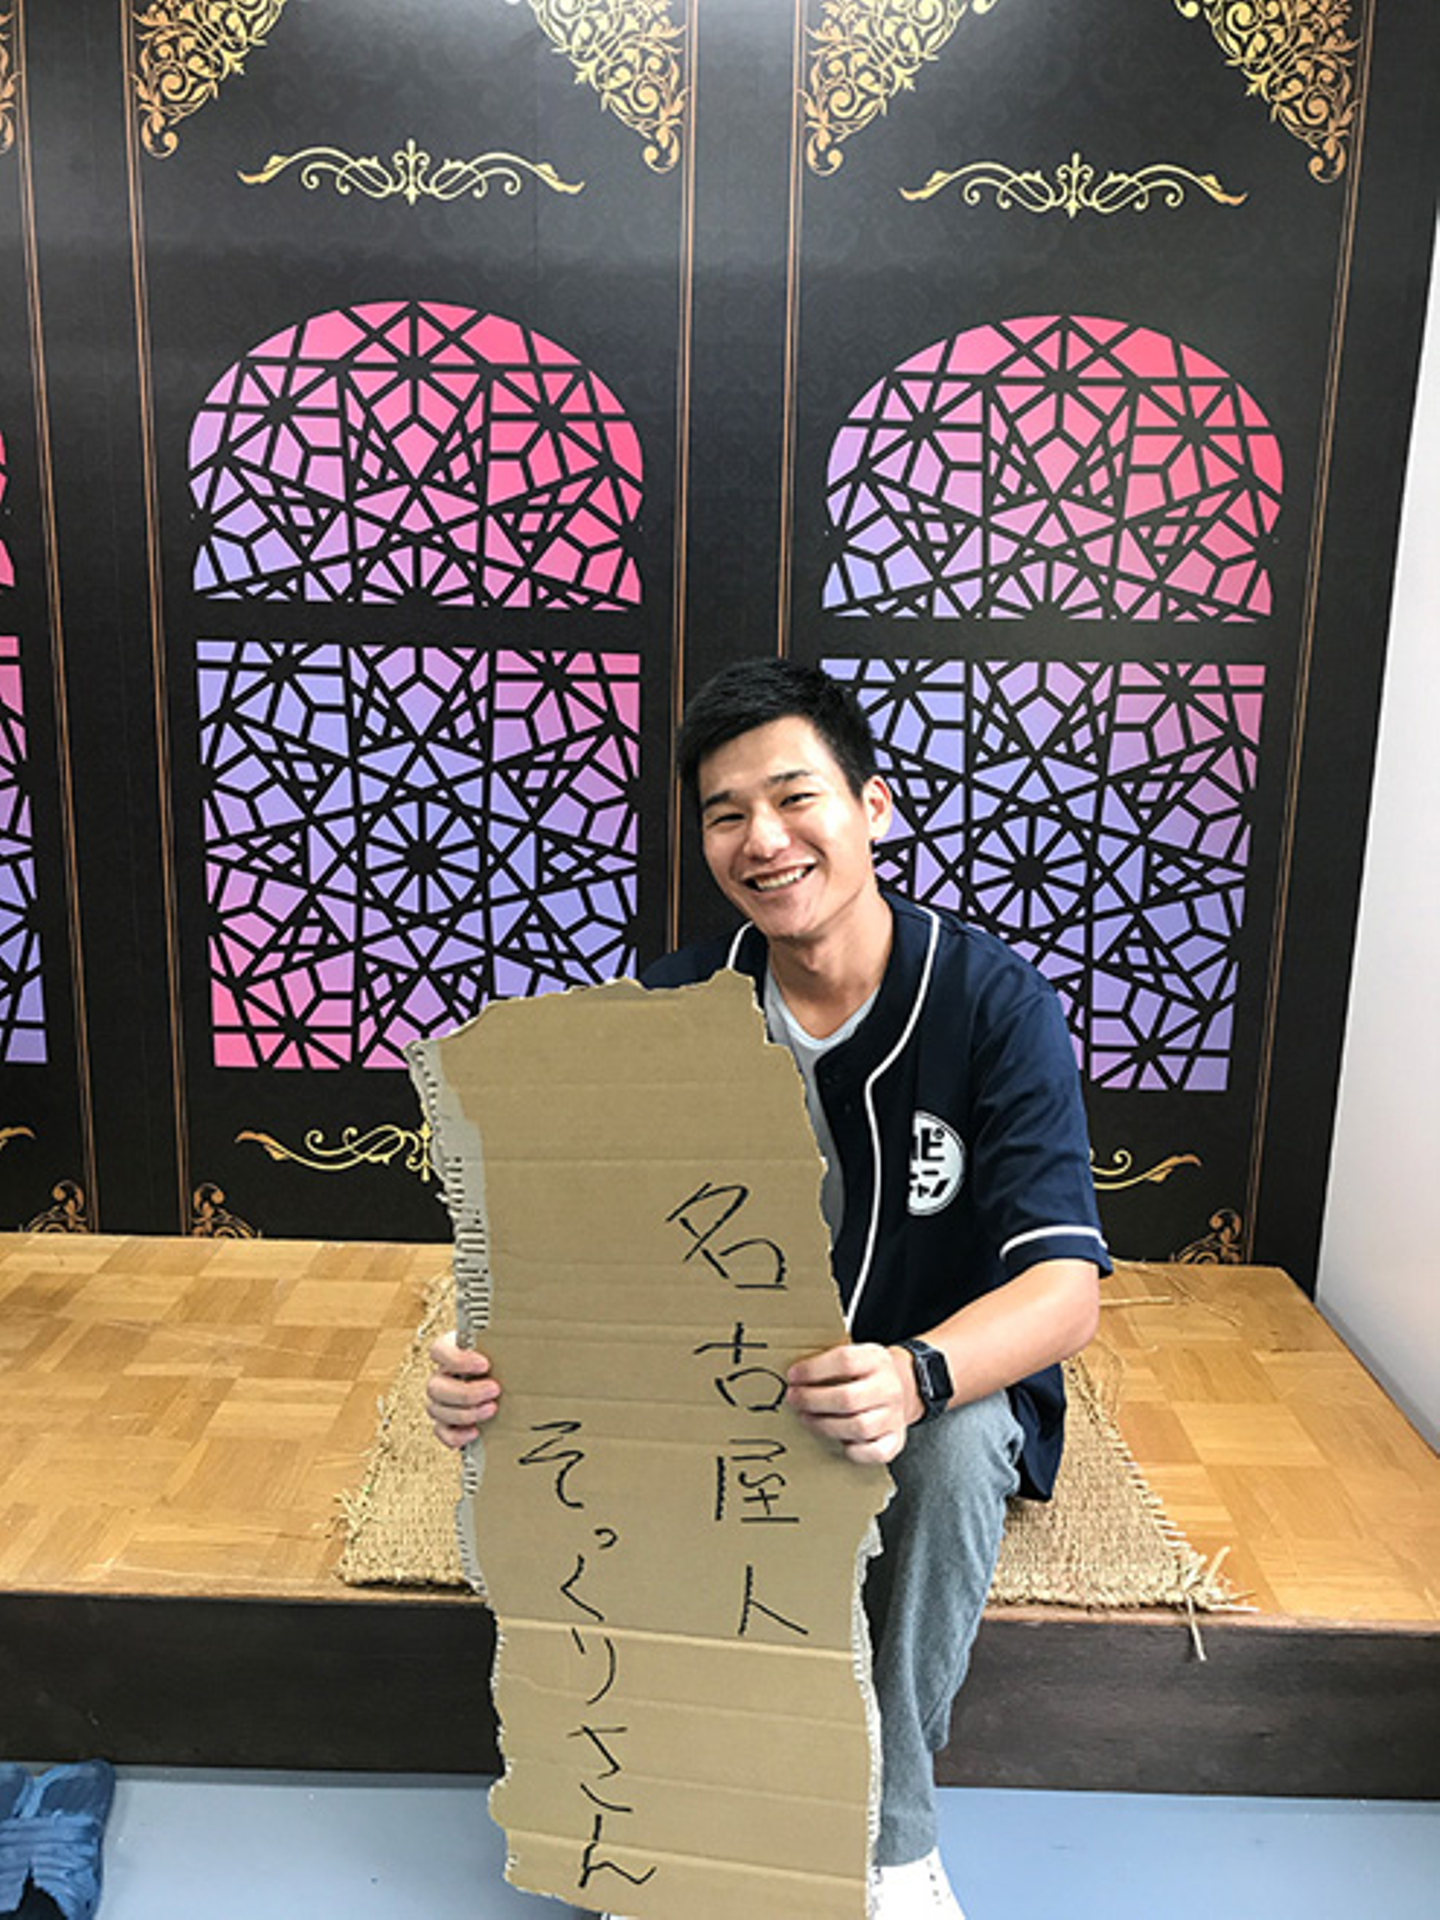 名古屋人
そっくりさん